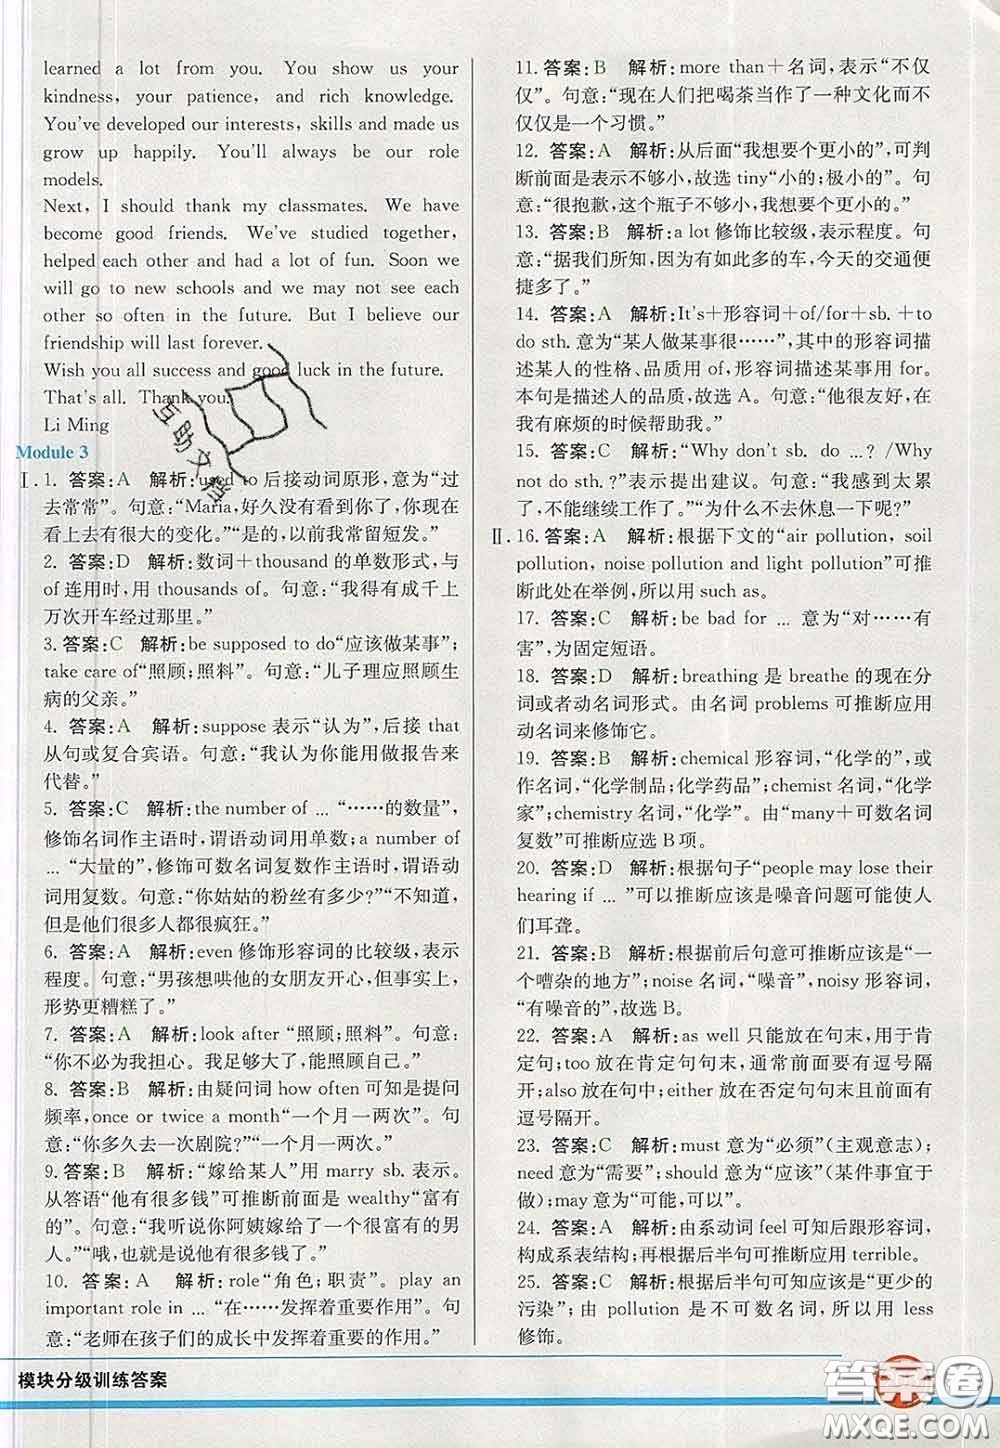 learned a lot from you. You show us your
kindness, your patience, and rich knowledge.
You've developed our interests, skills and made us
grow up happily. You'll always be our role
models.
Next, I should thank my classmates. We have
become good friends. We've studied together,
helped each other and had a lot of fun. Soon we
will go to new schools and we may not see each
other so often in the future. But I believe our
friendship will last forever.
Wish you all success and good luck in the future.
That's all. Thank you.
Li Ming
Module 3
Ⅰ. 1. 答案:A 解析:used to 后接动词原形,意为“过
去常常”。句意:“Maria,好久没有看到你,你现在
看上去有很大的变化。”“是的,以前我常留短发。”
2. 答案:D 解析:数词+thousand 的单数形式,与
of 连用时,用 thousands of。句意:“我得有成千上
万次开车经过那里。”
3. 答案:C 解析:be supposed to do“应该做某事”;
take care of“照顾;照料”。句意:“儿子理应照顾生
病的父亲。”
4. 答案:A 解析:suppose 表示“认为”,后接 that
从句或复合宾语。句意:“我认为你能用报告来
代替。”
5. 答案:C 解析:the number of … “……的数量”,
修饰名词作主语时,谓语动词用单数;a number of
… “大量的”,修饰可数名词复数作主语时,谓语动
词用复数。句意:“你姑姑的粉丝有多少?”“几千,
但是他们很多人都很疯狂。”
6. 答案:A 解析:even 修饰形容词的比较级,表示
程度。句意:“男孩想哄他的女朋友开心,但是,
形势更糟糕了。”
7. 答案:A 解析:look after “照顾;照料”。句意:
“你不必为我担心。我足够大了,能照顾自己。”
8. 答案:B 解析:由疑问词 how often 可知是提问
频率,once or twice a month“一个月一两次”。句
意:“你多久去一次剧院?”“一个月一两次。”
9. 答案:B 解析:“嫁给某人”用 marry sb. 表示。
从答语“他有很多钱”可推断出是 wealthy“富有
的”。句意:“我听说你阿姨嫁给了一个很富有的男
人。”“哦,也就是说他有很多钱了。”
10. 答案:A 解析:role“角色;职责”。play an
important role in … “在……发挥着重要作用”。句
意:“老师在孩子们的成长中发挥着重要的作用。”
11. 答案:B 解析:more than+名词,表示“不仅
仅”。句意:“现在人们把喝茶当作了一种文化而不
仅仅是一个习惯。”
12. 答案:A 解析:从后面“我想要个更小的”,可判
断前面是表示不够小,故选 tiny“小的;极小的”。句
意:“很抱歉,这个瓶子不够小,我想要个更小的。”
13. 答案:B 解析:a lot 修饰比较级,表示程度。句
意:“据我们所知,因为有如此多的车,今天的交通便
捷多了。”
14. 答案:A 解析:It's+形容词+of/for+sb. +to
do sth. 意为“某人做某事很……”,其中的形容词描
述某人的性格、品质用 of,形容词描述某事用 for。
本句是描述人的品质,故选 A。句意:“他很友好,
在我有麻烦的时候帮助我。”
15. 答案:A 解析:“Why don't sb. do …? /Why
not do sth. ?”表示提出建议。句意:“我感到太累
了,不能继续工作了。”“为什么不去休息一下呢?”
Ⅱ. 16. 答案:A 解析:根据下文的“air pollution, soil
pollution, noise pollution and light pollution”可推
断此处在举例,所以用 such as。
17. 答案:C 解析:be bad for … 意为“对……有
害”,为固定短语。
18. 答案:D 解析:breathing 是 breathe 的现在分
词或者动名词形式。由名词 problems 可推断应用
动名词来修饰它。
19. 答案:B 解析:chemical 形容词,“化学的”,或
作名词,“化学制品;化学药品”;chemist 名词,“化学
家”;chemistry 名词,“化学”。由“many+可数名词
复数”可推断应选 B 项。
20. 答案:D 解析:根据句子“people may lose their
hearing if …”可以推断应该是噪音问题可能使人
们耳聋。
21. 答案:B 解析:根据前后句意可推断应该是“一
个嘈杂的地方”;noise 名词,“噪音”,noisy 形容词,
“有噪音的”,故选 B。
22. 答案:A 解析:as well 只能放在句末,用于肯
定句;too 放在肯定句句末,通常前面应有逗号隔
开;also 放在句中;either 放在否定句句末且前面有
逗号隔开。
23. 答案:C 解析:must 意为“必须”(主观意志);
need 意为“需要”;should 意为“应该”(某件事宜于
做);may 意为“可能,可以”。
24. 答案:A 解析:由系动词 feel 可知后跟形容词,
构成系表结构;再根据后半句可推断应用 terrible。
25. 答案:C 解析:根据后半句可知应该是“更少的
污染”;由 pollution 是不可数名词,所以用 less
修饰。
模块分级训练答案
答案卷
MXQE.COM